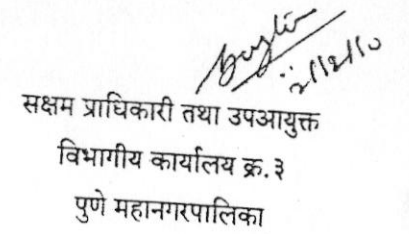 सक्षम प्राधिकारी तथा उपआयुक्त
विभागीय कार्यालय क्र.३
पुणे महानगरपालिका